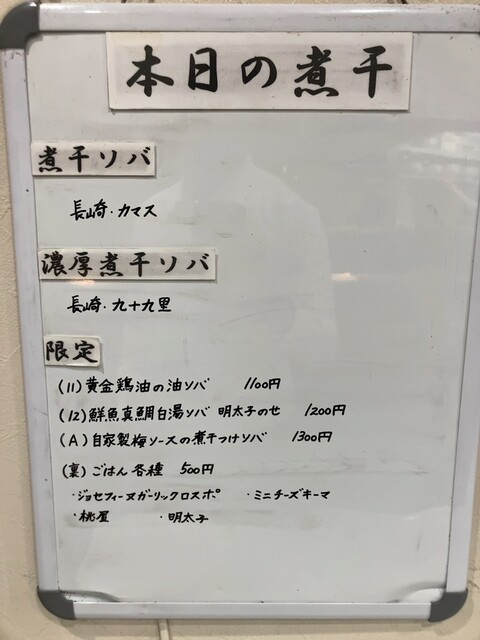 本日の煮干
煮干ソバ
長崎・カマス
濃厚煮干ソバ
長崎・九十九里
限定
(11) 黄金鶏油の油ソバ 1100円
(12) 鮮魚真鯛白湯ソバ 明太子のせ 1200円
(A) 自家製梅ソースの煮干つけソバ 1300円
(裏) ごはん各種 500円
・ジョセフィーヌガーリックロスポ ・ミニチーズキーマ
・桃屋 ・明太子